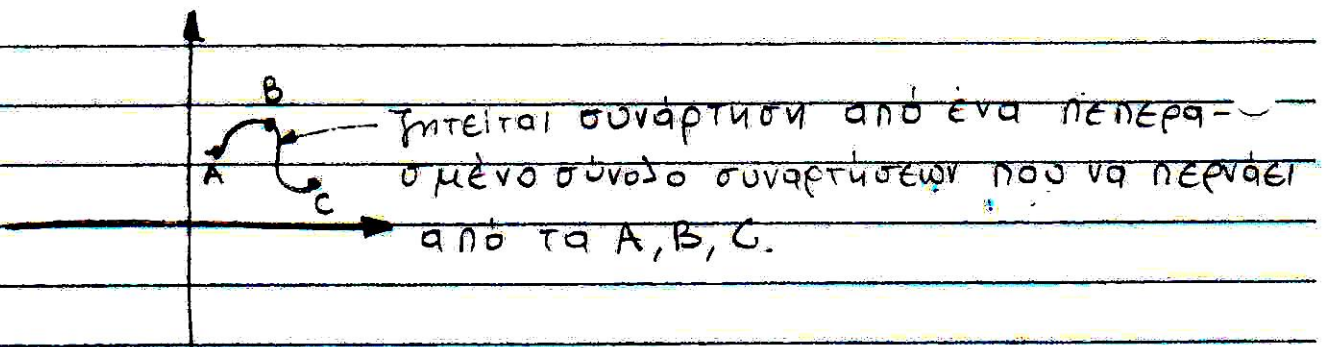 B
ζητείται συνάρτηση από ένα πεπερα-
A
σμένο σύνολο συναρτήσεων που να περνάει
C
από τα A, B, C.